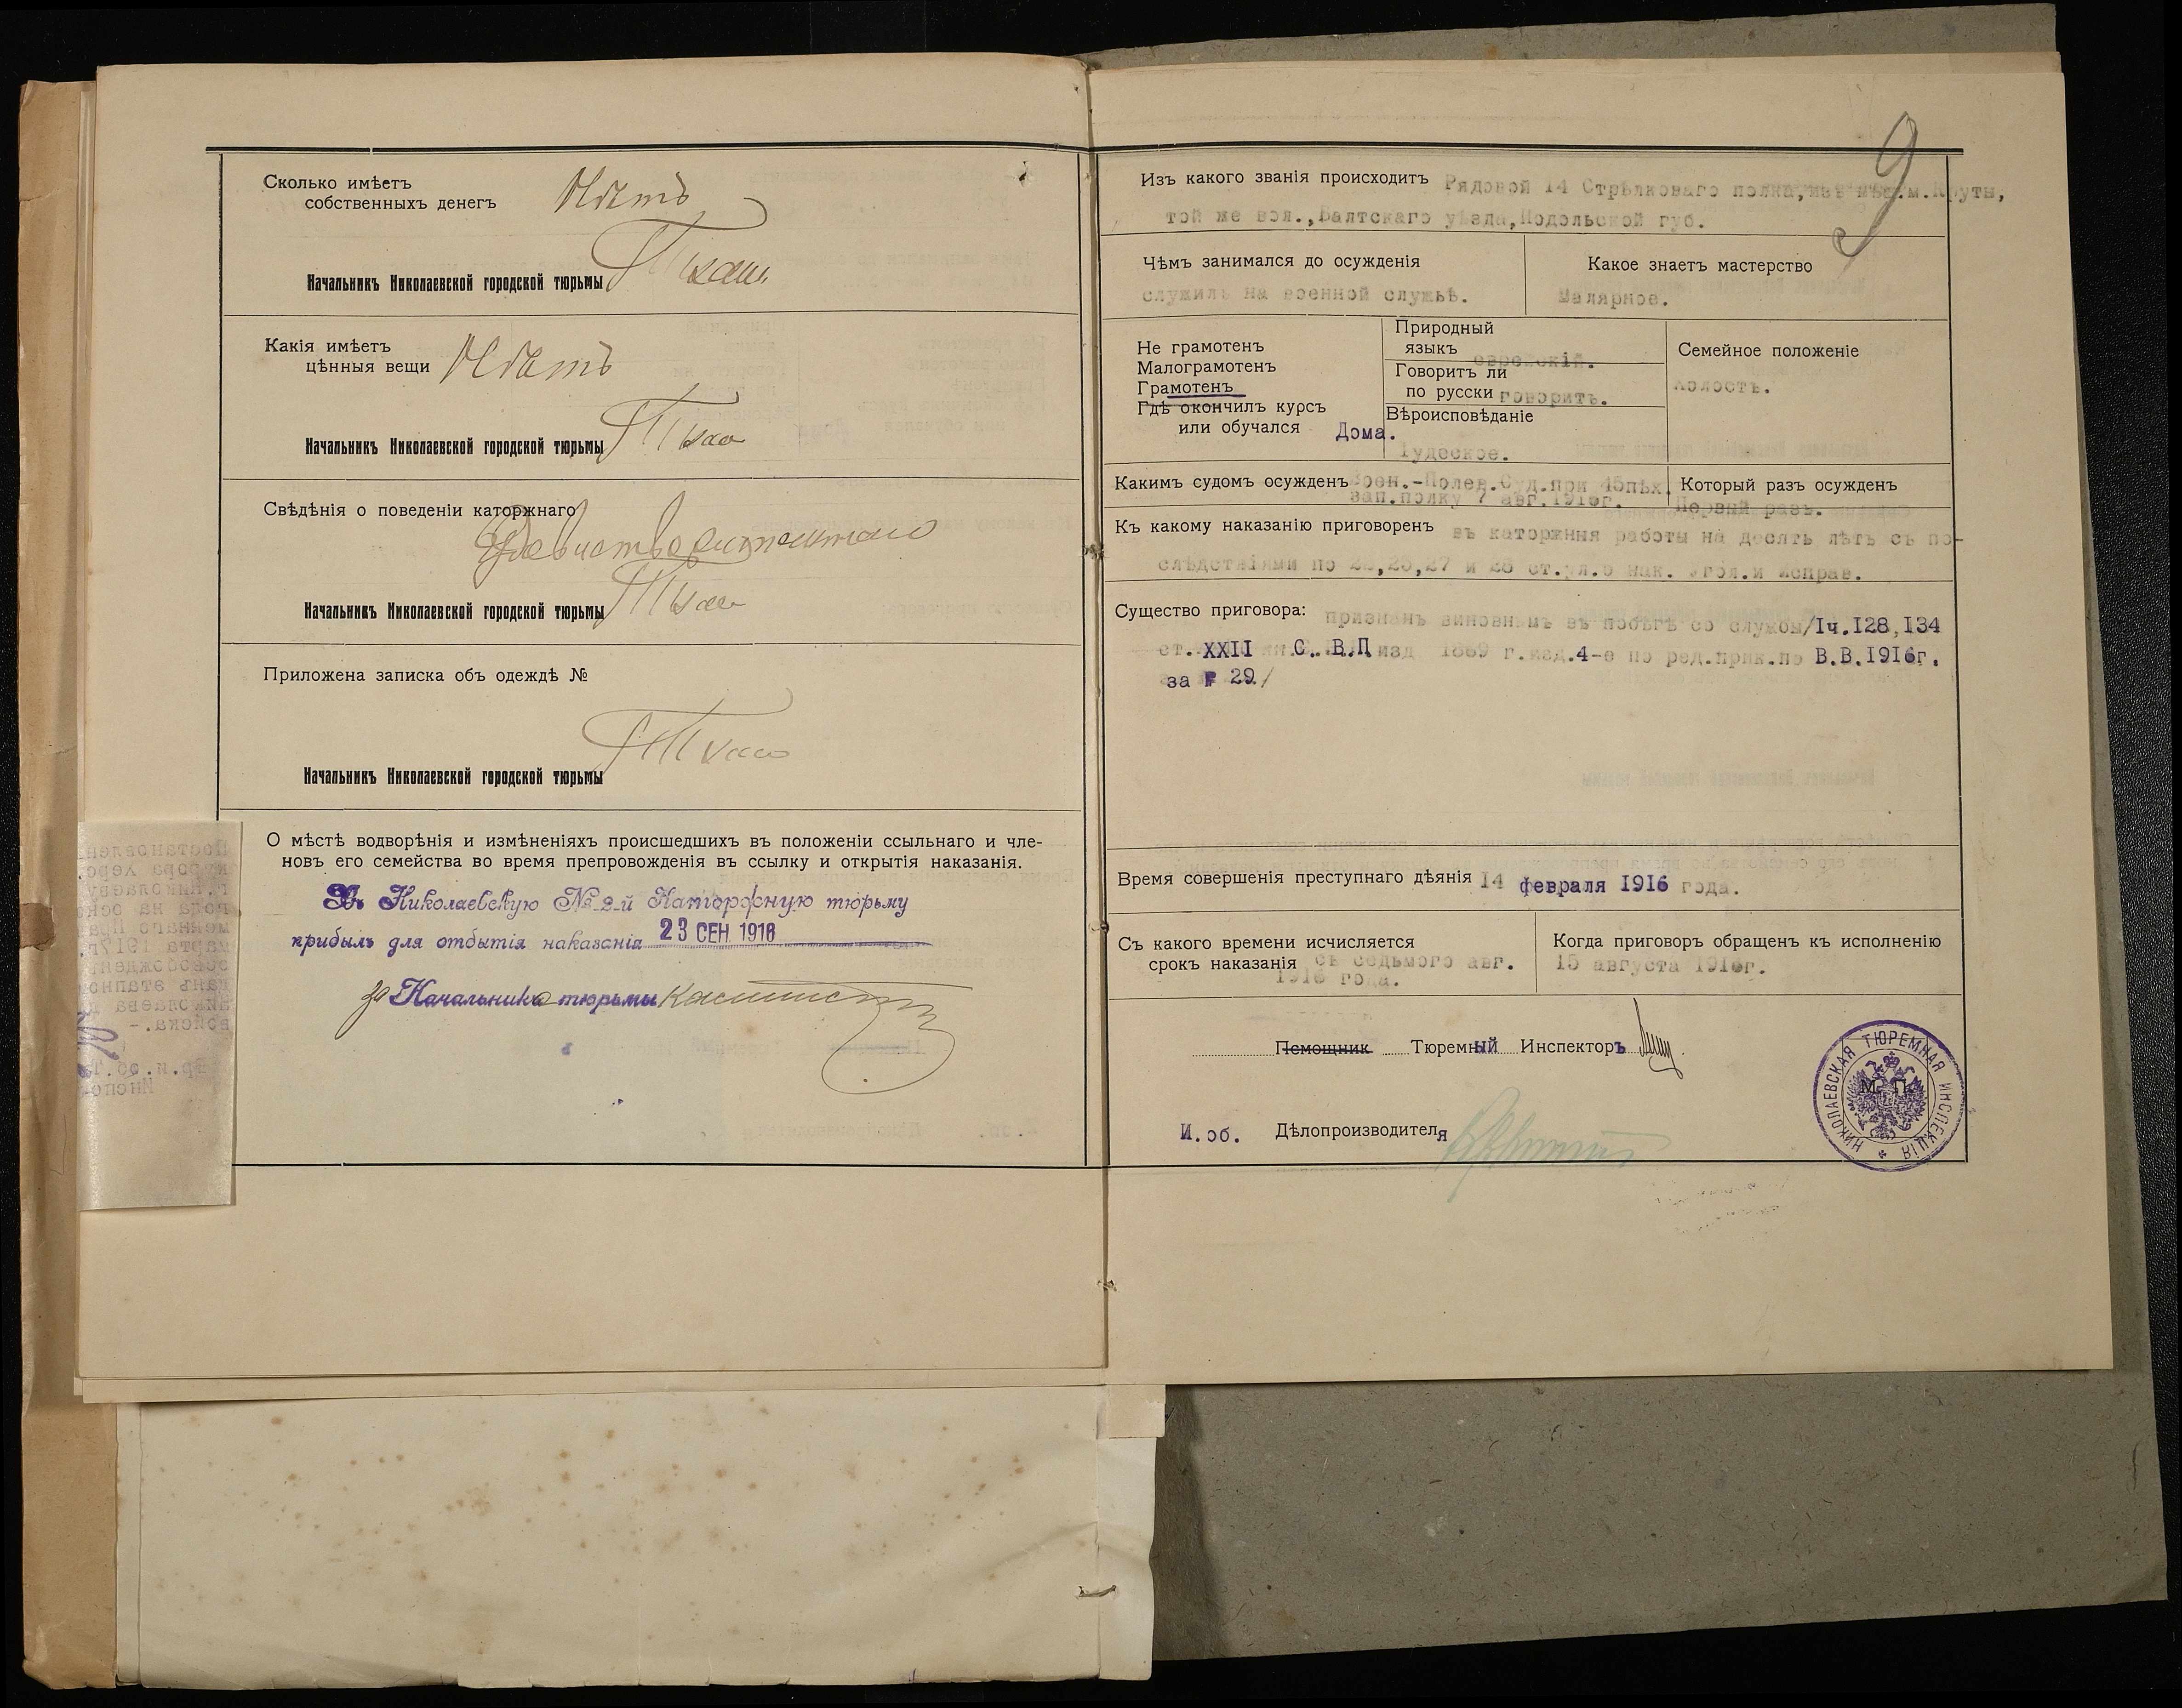 Сколько имѣетъ
собственныхъ денегъ Нѣтъ
Начальникъ Николаевской городской тюрьмы
Какія имѣетъ
цѣнныя вещи Нѣтъ
Начальникъ Николаевской городской тюрьмы
Свѣдѣнія о поведеніи каторжнаго
Начальникъ Николаевской городской тюрьмы
Приложена записка объ одеждѣ №
Начальникъ Николаевской городской тюрьмы
О мѣстѣ водворѣнія и измѣненіяхъ происшедшихъ въ положеніи ссыльнаго и чле-
новъ его семейства во время препровожденія въ ссылку и открытія наказанія.
Въ Николаевскую № 2-й Каторжную тюрьму
прибылъ для отбытія наказанія 23 СЕН. 1916
за Начальника тюрьмы
9
Изъ какого званія происходитъ Рядовой 14 Стрѣлковаго полка, изъ мѣщ.м.Круты,
той же вол., Балтскаго уѣзда, Подольской губ.
Чѣмъ занимался до осужденія
служилъ на военной службѣ.
Какое знаетъ мастерство
Малярное.
Не грамотенъ
Малограмотенъ
Грамотенъ
Гдѣ окончилъ курсъ
или обучался Дома.
Природный
языкъ еврейскій.
Говоритъ ли
по русски говоритъ.
Вѣроисповѣданіе
Іудеское.
Семейное положеніе
Холостъ.
Какимъ судомъ осужденъ Воен.-Полев.Суд.при 45пѣх.
зап.полку 7 авг.1916г.
Который разъ осужденъ
Первый разъ.
Къ какому наказанію приговоренъ въ каторжныя работы на десять лѣтъ съ по-
слѣдствіями по 22,25,27 и 28 ст.ул.о нак. угол.и исправ.
Существо приговора: признанъ виновнымъ въ побѣгѣ со службы/1ч.128,134
ст. XXII кн. С. В.П изд 1869 г.изд.4-е по ред.прик.по В.В.1916г.
за № 29/
Время совершенія преступнаго дѣянія 14 февраля 1916 года.
Съ какого времени исчисляется
срокъ наказанія съ седьмого авг.
1916 года.
Когда приговоръ обращенъ къ исполненію
15 августа 1916г.
Помощник Тюремный Инспекторъ
И.об. Дѣлопроизводителя
НИКОЛАЕВСКАЯ ТЮРЕМНАЯ ИНСПЕКЦІЯ
М. П.